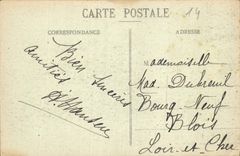 CARTE POSTALE
14
CORRESPONDANCE
ADRESSE
Bien sincères
amitiés
Mademoiselle
Mad. Dubreuil
Bourg-Neuf
Blois
Loir et Cher